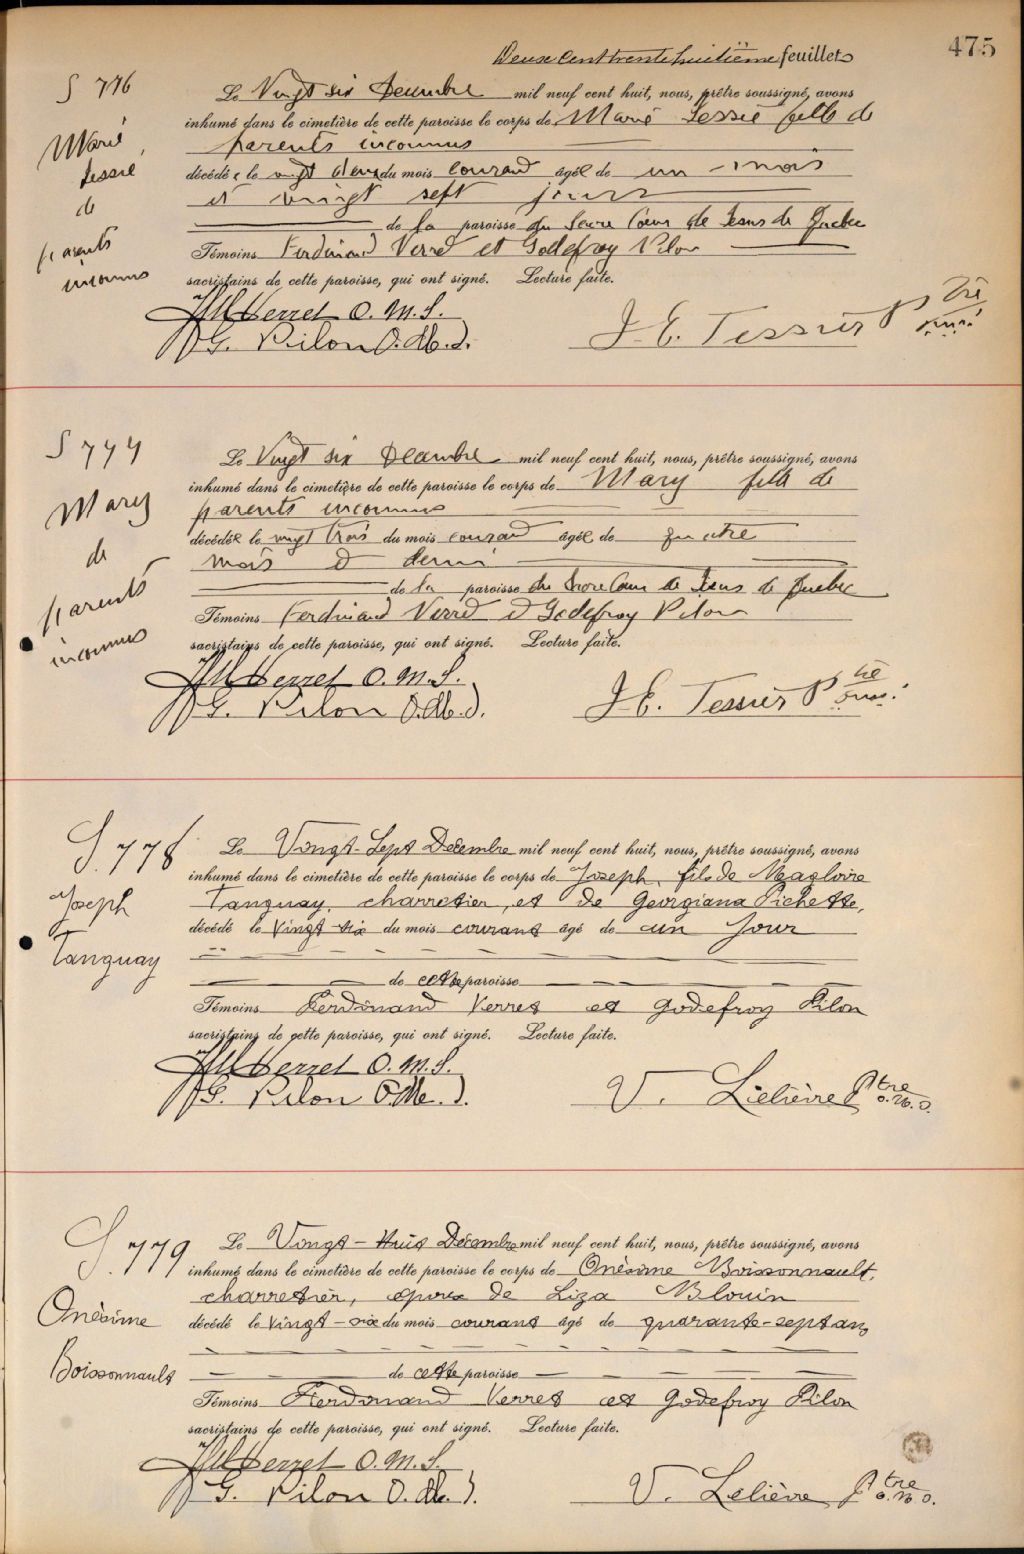 Deux cent trente huitième feuillet
475
S 776
Marie
Jessie
de
parents
inconnus
Le Vingt six Decembre mil neuf cent huit, nous, prêtre soussigné, avons
inhumé dans le cimetière de cette paroisse le corps de Marie Jessie fille de
parents inconnus
décédée le vingt deux du mois courant âgée de un mois
et vingt sept jours
de la paroisse du Sacre Cœur de Jesus de Quebec
Témoins Ferdinand Verret et Godefroy Pilon
sacristains de cette paroisse, qui ont signé. Lecture faite.
Verret O.M.I.
G. Pilon O.M.I.
J. E. Tessier Ptre
curé
S 777
Mary
de
parents
inconnus
Le Vingt six Decembre mil neuf cent huit, nous, prêtre soussigné, avons
inhumé dans le cimetière de cette paroisse le corps de Mary fille de
parents inconnus
décédée le vingt trois du mois courant âgée de quatre
mois et demi
de la paroisse du Sacre Cœur de Jesus de Quebec
Témoins Ferdinand Verret et Godefroy Pilon
sacristains de cette paroisse, qui ont signé. Lecture faite.
Verret O.M.I.
G. Pilon O.M.I.
J. E. Tessier Ptre
curé
S. 778
Joseph
Tanguay
Le Vingt-Sept Décembre mil neuf cent huit, nous, prêtre soussigné, avons
inhumé dans le cimetière de cette paroisse le corps de Joseph, fils de Magloire
Tanguay, charretier, et de Georgiana Pichette,
décédé le vingt-six du mois courant âgé de un jour
de cette paroisse
Témoins Ferdinand Verret et Godefroy Pilon
sacristains de cette paroisse, qui ont signé. Lecture faite.
Verret O.M.I.
G. Pilon O.M.I.
V. Lelièvre Ptre
o.m.i.
S. 779
Onésime
Boissonnault
Le Vingt-Huit Décembre mil neuf cent huit, nous, prêtre soussigné, avons
inhumé dans le cimetière de cette paroisse le corps de Onésime Boissonnault,
charretier, époux de Liza Blouin
décédé le vingt-six du mois courant âgé de quarante-sept ans
de cette paroisse
Témoins Ferdinand Verret et Godefroy Pilon
sacristains de cette paroisse, qui ont signé. Lecture faite.
Verret O.M.I.
G. Pilon O.M.I.
V. Lelièvre Ptre
o.m.i.